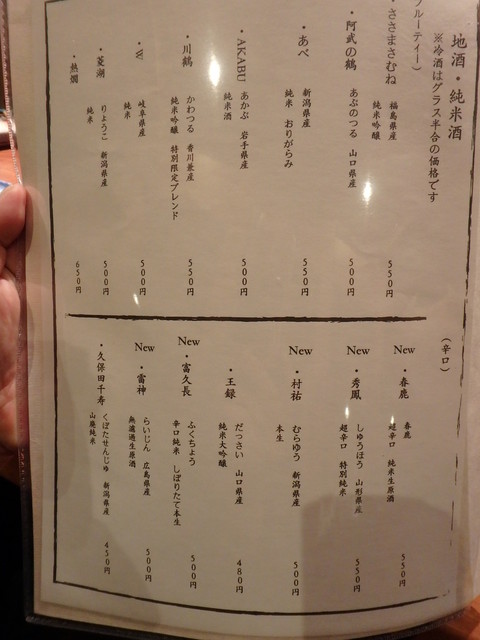 地酒・純米酒
※冷酒はグラス半合の価格です
フルーティー）
・ささまさむね 福島県産
純米吟醸 550円
・阿武の鶴 あぶのつる 山口県産 500円
・あべ 新潟県産
純米 おりがらみ 550円
・AKABU あかぶ 岩手県産
純米酒 500円
・川鶴 かわつる 香川兼産
純米吟醸 特別限定ブレンド 550円
・W 岐阜県産
純米 500円
・菱湖 りょうこ 新潟県産
純米 500円
・熱燗 650円
（辛口）
New ・春鹿 春鹿
超辛口 純米生原酒 550円
New ・秀鳳 しゅうほう 山形県産
超辛口 特別純米 550円
New ・村祐 むらゆう 新潟県産
本生 500円
・王録 だっさい 山口県産
純米大吟醸 480円
New ・富久長 ふくちょう
辛口純米 しぼりたて本生 500円
New ・雷神 らいじん 広島県産
無濾過生原酒 500円
・久保田千寿 くぼたせんじゅ 新潟県産
山廃純米 450円